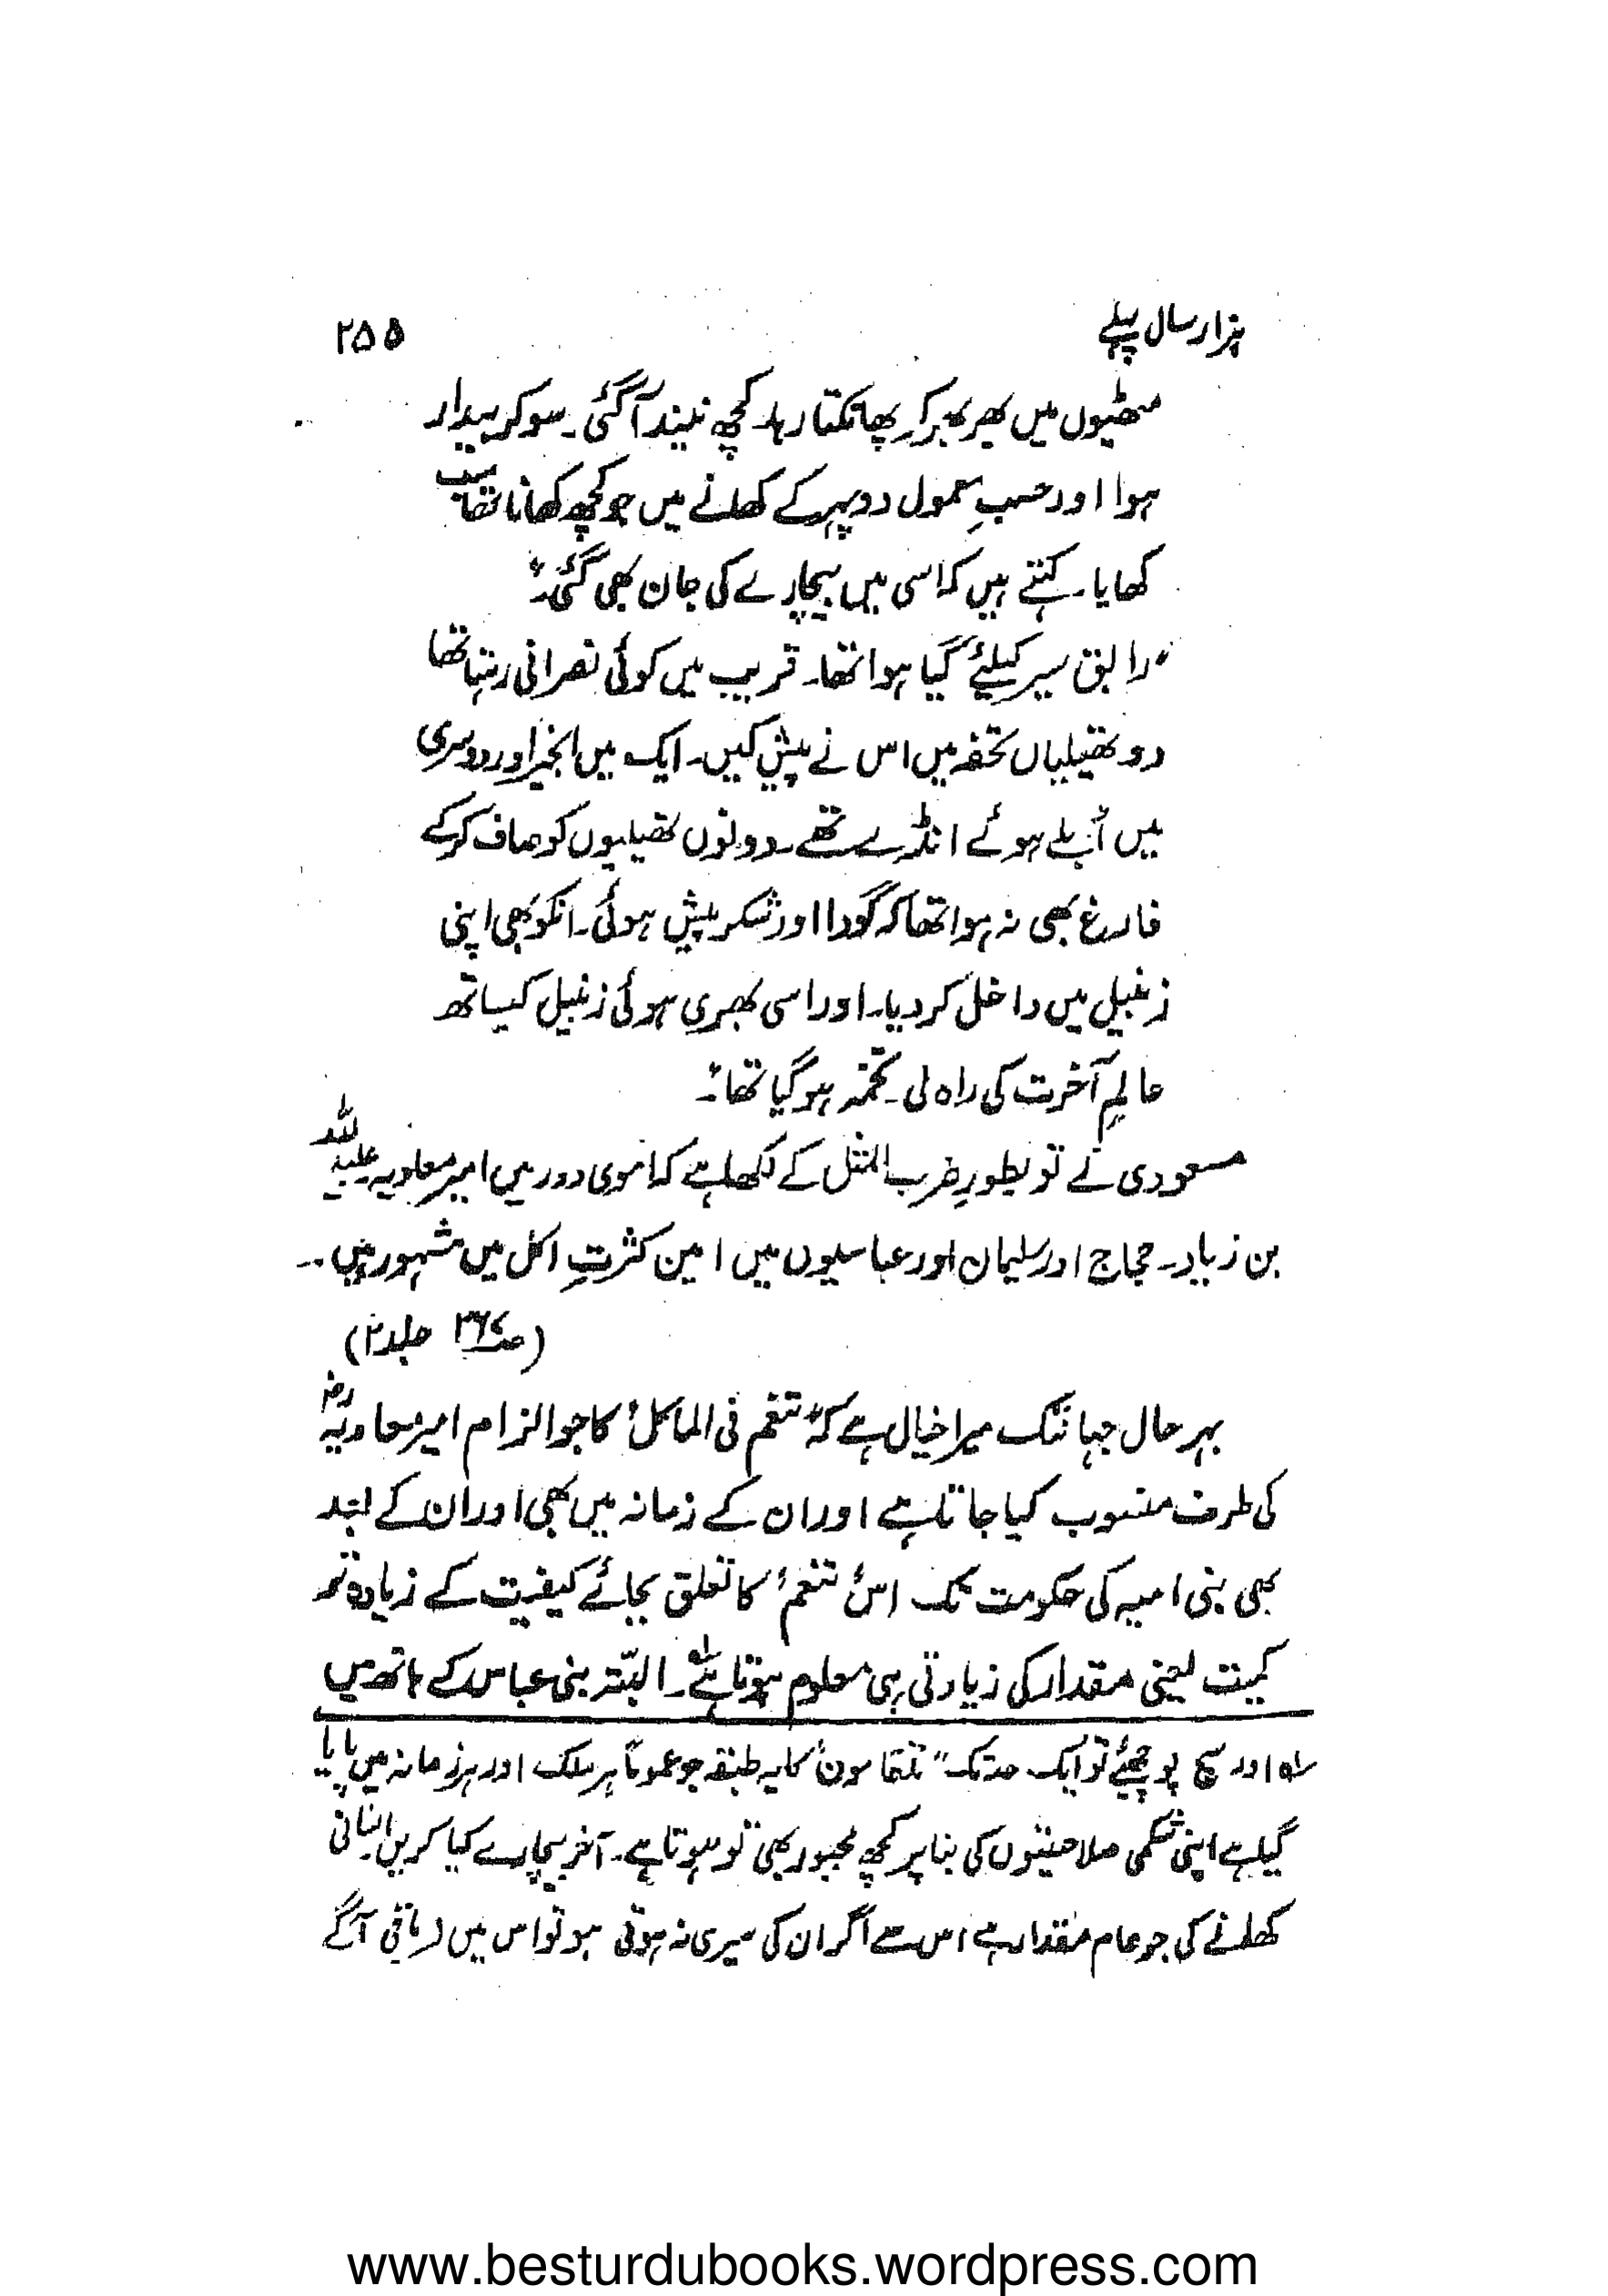 ہزار سال پہلے ۲۵۵
مٹھیوں میں بھر بھر کر پھانکتا رہا۔ کچھ نیند آگئی۔ سوکر بیدار
ہوا اور حسبِ معمول دوپہر کے کھانے میں جو کچھ کھانا تھا سب
کھایا۔ کہتے ہیں کہ اسی میں بیچارے کی جان بھی گئی۔"
"رابق سیر کیلئے گیا ہوا تھا۔ قریب میں کوئی نصرانی رہتا تھا
دو تھیلیاں تحفہ میں اس نے پیش کیں۔ ایک میں انجیر اور دوسری
میں اُبلے ہوئے انڈے تھے۔ دونوں تھیلیوں کو صاف کرکے
فارغ بھی نہ ہوا تھا کہ گودا اور شکر پیش ہوئی۔ انکو بھی اپنی
زنبیل میں داخل کر دیا۔ اور اسی بھری ہوئی زنبیل کیساتھ
عالمِ آخرت کی راہ لی۔ تخمہ ہوگیا تھا"۔
مسعودی نے تو بطورِ ضرب المثل کے لکھا ہے کہ اموی دور میں امیر معاویہ۔ عبید اللہ
بن زیاد۔ حجاج اور سلیمان اور عباسیوں میں امین کثرتِ اکل میں مشہور ہیں۔۔
(صـ۳۶۷ جلد ۲)
بہر حال جہانتک میرا خیال ہے کہ "تنعم فی الماکل" کا جو الزام امیر معاویہؓ
کی طرف منسوب کیا جاتا ہے اور ان کے زمانہ میں بھی اور ان کے بعد
بھی بنی امیہ کی حکومت تک اس "تنعم" کا تعلق بجائے کیفیت کے زیادہ تر
کمیت یعنی مقدار کی زیادتی ہی معلوم ہوتا ہے۱؎۔ البتہ بنی عباس کے ہاتھ میں
۱؎ اور سچ پوچھئے تو ایک حد تک "تلقامون" کا یہ طبقہ جو عموماً ہر ملک اور ہر زمانہ میں پایا
گیا ہے اپنی شکمی صلاحیتوں کی بنا پر کچھ مجبور بھی تو ہوتا ہے۔ آخر بیچارے کیا کریں انسانی
کھانے کی جو عام مقدار ہے اس سے اگر ان کی سیری نہ ہوتی ہو تو اس میں (باقی آگے
www.besturdubooks.wordpress.com